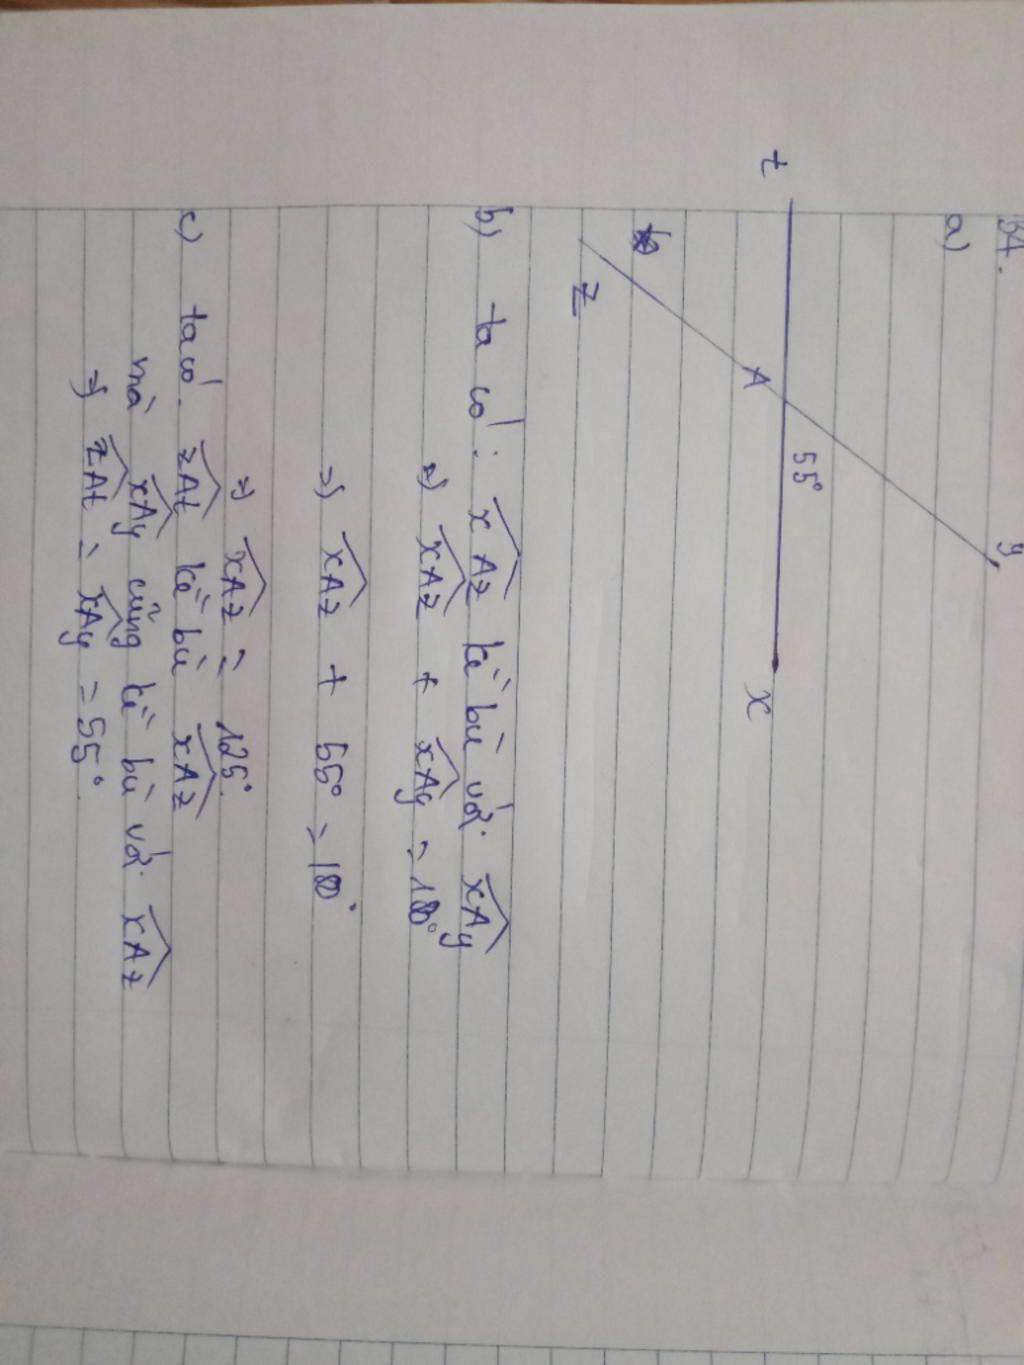 B4.
a)
y
55°
t
A
x
z
b) ta có: xAz kề bù với xAy
=) xAz + xAy = 180°
=) xAz + 55° = 180°
=) xAz = 125°.
c) ta có. zAt kề bù xAz
mà xAy cũng kề bù với xAz
=) zAt = xAy = 55°.